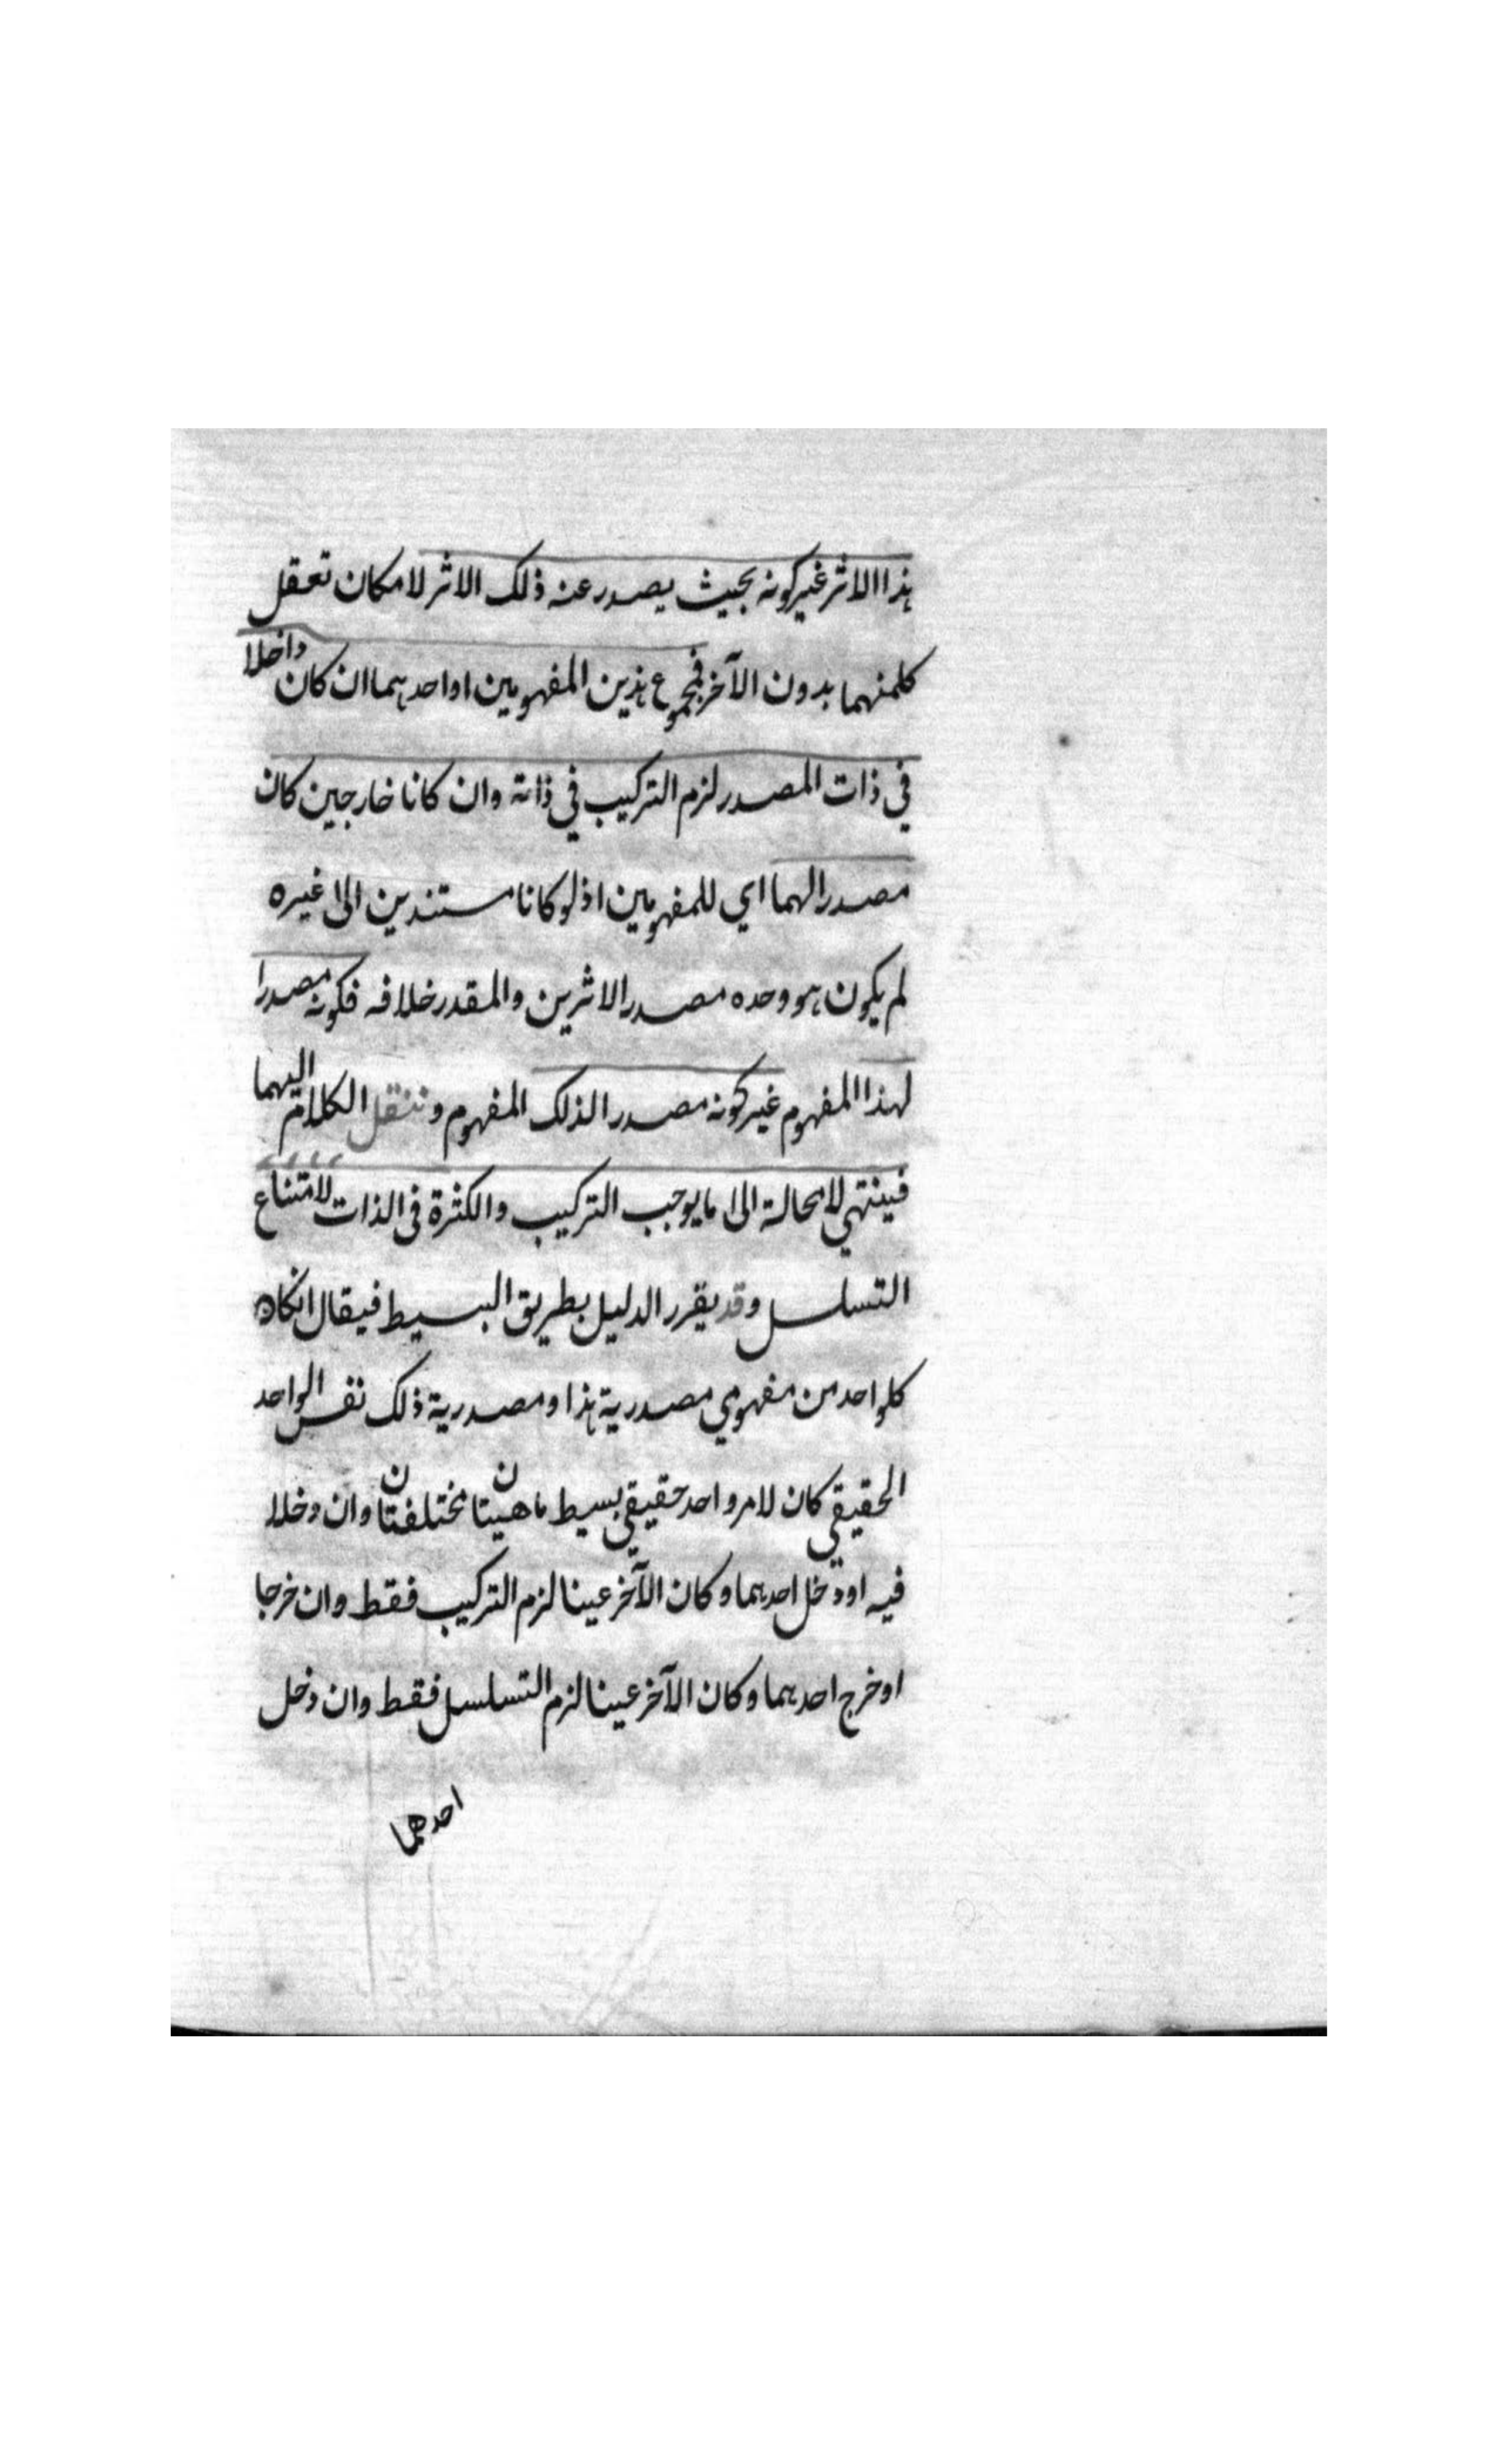 هذا الاثر غير كونه بحيث يصدر عنه ذلك الاثر لامكان تعقل
كلمنهما بدون الآخر فمجموع هذين المفهومين او احدهما ان كان داخلا
في ذات المصدر لزم التركيب في ذاته وان كانا خارجين كان
مصدرا لهما اي للمفهومين اذ لو كانا مستندين الى غيره
لم يكون هو وحده مصدر الاثرين والمقدر خلافه فكونه مصدرا
لهذا المفهوم غير كونه مصدرا لذلك المفهوم وننقل الكلام اليهما
فينتهي لامحالة الى ما يوجب التركيب والكثرة في الذات لامتناع
التسلسل وقد يقرر الدليل بطريق البسيط فيقال انكان
كلواحد من مفهومي مصدرية هذا ومصدرية ذلك نفس الواحد
الحقيقي كان لامر واحد حقيقي بسيط ماهيتان مختلفتان وان دخلا
فيه او دخل احدهما وكان الآخر عينا لزم التركيب فقط وان خرجا
او خرج احدهما وكان الآخر عينا لزم التسلسل فقط وان دخل
احدهما